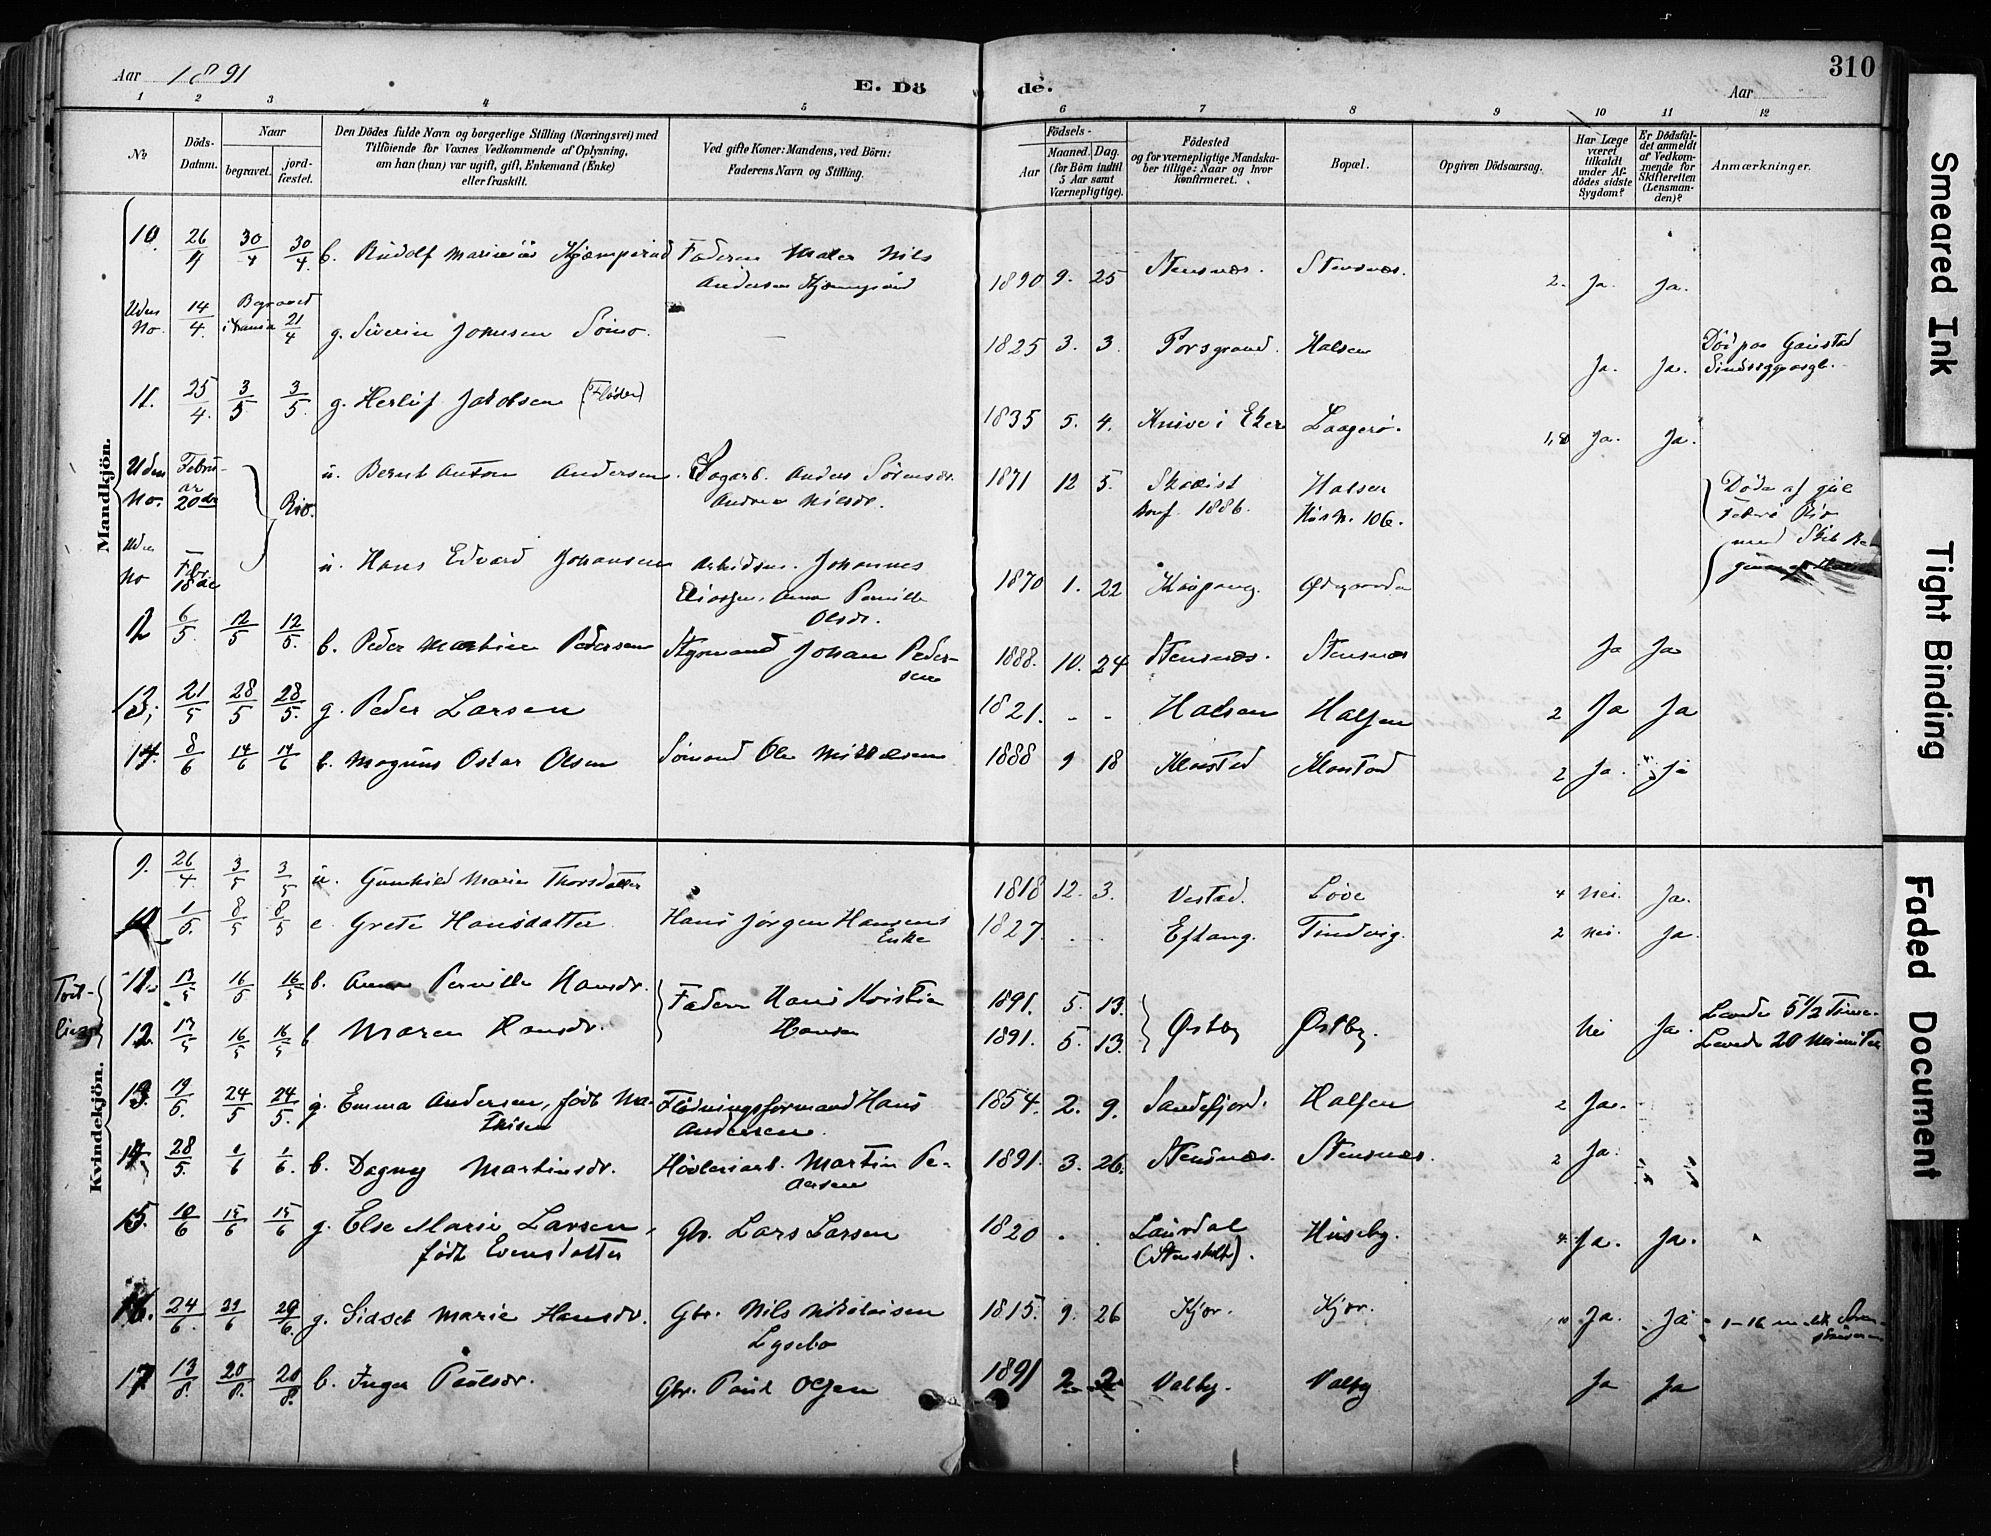 Aar 1891
E. Dö
de.
Aar
310
1 2 3 4 5 6 7 8 9 10 11 12
No
Döds-Datum.
Naar
begravet.
jord-fæstet.
Den Dödes fulde Navn og borgerlige Stilling (Næringsvei) med
Tilföiende for Voxnes Vedkommende af Oplysning,
om han (hun) var ugift, gift, Enkemand (Enke)
eller fraskilt.
Ved gifte Koner: Mandens, ved Börn:
Faderens Navn og Stilling.
Födsels-
Aar
Maaned. Dag.
(for Börn indtil
5 Aar samt
Værnepligtige).
Födested
og for værnepligtige Mandska-
ber tillige: Naar og hvor
konfirmeret.
Bopæl.
Opgiven Dödsaarsag.
Har Læge
været
tilkaldt
under Af-
dödes sidste
Sygdom?
Er Dödsfal-
det anmeldt
af Vedkom-
mende for
Skifteretten
(Lensman-
den)?
Anmærkninger.
Mandkjön.
10. 26/4 30/4 30/4. b. Rudolf Marinius Kjæmperud Faderen Maler Nils
Andersen 1890 9. 25 Stensnæs. Stensnæs. 2. Ja. Ja.
Uden No. 14/4. Begravet 21/4 g. Severin Johnsen 1825 3. 3. Porsgrund. Halsen Ja. Ja. Död paa Gaustad
Sindssygeasyl.
11. 25/4. 3/5 3/5. g. Herlof Jakobsen 1835 5. 4. i Eker Laagerø. Ja. Ja.
Uden No. Febru-
ar
20de Rio. u. Bernt Anton Andersen. Anders Sørensen.
1871 12 5. Konf. 1886. Halsen
Hus N. 106. Døde af gule
Feber i Rio
med Skib
Uden No 18de u. Hans Edvard Johansen Arbeidsm. Johannes
Anna Pernille
Olsdr. 1870 1. 22
12 6/5. 12/5 12/5. b. Peder Martin Pedersen Styrmand Johan Peder-
sen 1888. 10. 24 Stensnæs. Stensnæs Ja Ja
13. 21/5 28/5 28/5. g. Peder Larsen 1821. - - Halsen Halsen 2 Ja Ja
14. 8/6 14/6 14/6 b. Magnus Oskar Olsen Sömand Ole Mikkelsen 1888 9 18 Klaastad Klaastad 2 Ja. Ja
Kvindekjön.
9. 26/4 3/5 3/5 u. Gunhild Marie Thorsdatter 1818 12. 3. Vestad. Løve 4 Nei. Ja.
10 1/5. 8/5 8/5 e. Grete Hansdatter Hans Jørgen Hansens
Enke 1827. . . Eftang. Tindvig. 2 Nei. Ja.
11. 13/5 16/5 16/5 b. Anna Pernille Hansdr. Faderen Hans Kristian
Hansen 1891. 5. 13. Østby Østby. Nei Ja. Levede 5 1/2 Time.
12. 13/5 16/5 16/5 b Maren Hansdr. 1891. 5. 13. Levede 20 Minuter
13. 19/5. 24/5 24/5. g. Emma Andersen, født Ma-
thisen Flødningsformand Hans
Andersen. 1854. 2. 9. Sandefjord. Halsen 2 Ja.
14. 28/5 1/6 1/6. b. Dagny Martinsdr. Høvleriarb. Martin Pe-
dersen 1891. 3. 26. Stensnæs. Stensnæs. 2 Ja.
15. 10/6 15/6 15/6 g. Else Marie Larsen,
født Evensdatter Gbr. Lars Larsen 1820 . . Laurdal Huseby. 4 Ja. Ja.
16. 24/6. 29/6 29/6. g. Sidsel Marie Hansdr. Gbr. Nils Nikolaisen
Lysebo 1815. 9. 26 Kjør. Kjør. Ja. Ja
17 13/8. 20/8. 20/8. b. Inger Paulsdr. Gbr. Paul Olsen 1891 2 2 Valby. Valby Ja Ja
Smeared Ink
Tight Binding
Faded Document